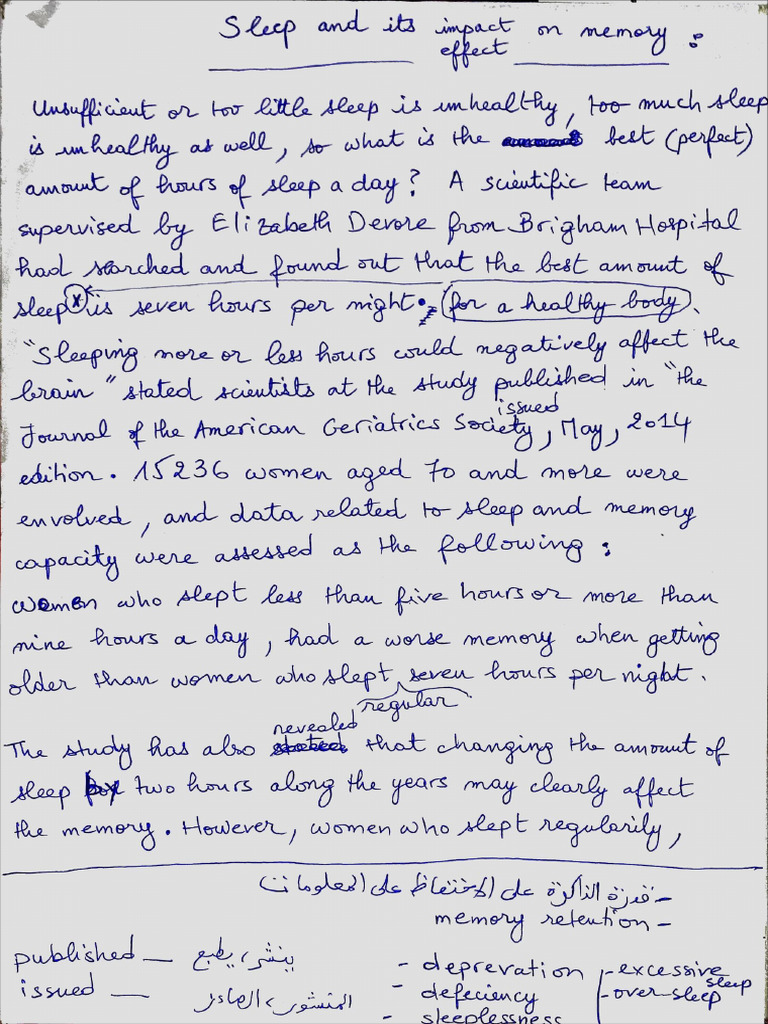 Sleep and its impact on memory :
effect
Unsufficient or too little sleep is unhealthy, too much sleep
is unhealthy as well, so what is the best (perfect)
amount of hours of sleep a day? A scientific team
supervised by Elizabeth Devore from Brigham Hospital
had searched and found out that the best amount of
sleep x is seven hours per night. (for a healthy body).
"Sleeping more or less hours could negatively affect the
brain" stated scientists at the study published in "the
issued
Journal of the American Geriatrics Society, May, 2014
edition. 15236 women aged 70 and more were
envolved, and data related to sleep and memory
capacity were assessed as the following :
women who slept less than five hours or more than
nine hours a day, had a worse memory when getting
older than women who slept seven hours per night.
regular
revealed
The study has also stated that changing the amount of
sleep by two hours along the years may clearly affect
the memory. However, women who slept regularily,
- قدرة الذاكرة على الاحتفاظ على المعلومات
memory retention -
published — ينشر، يطبع
issued — المنشور، الصادر
- deprevation
- defeciency
- sleeplessness
- excessive sleep
- over-sleep